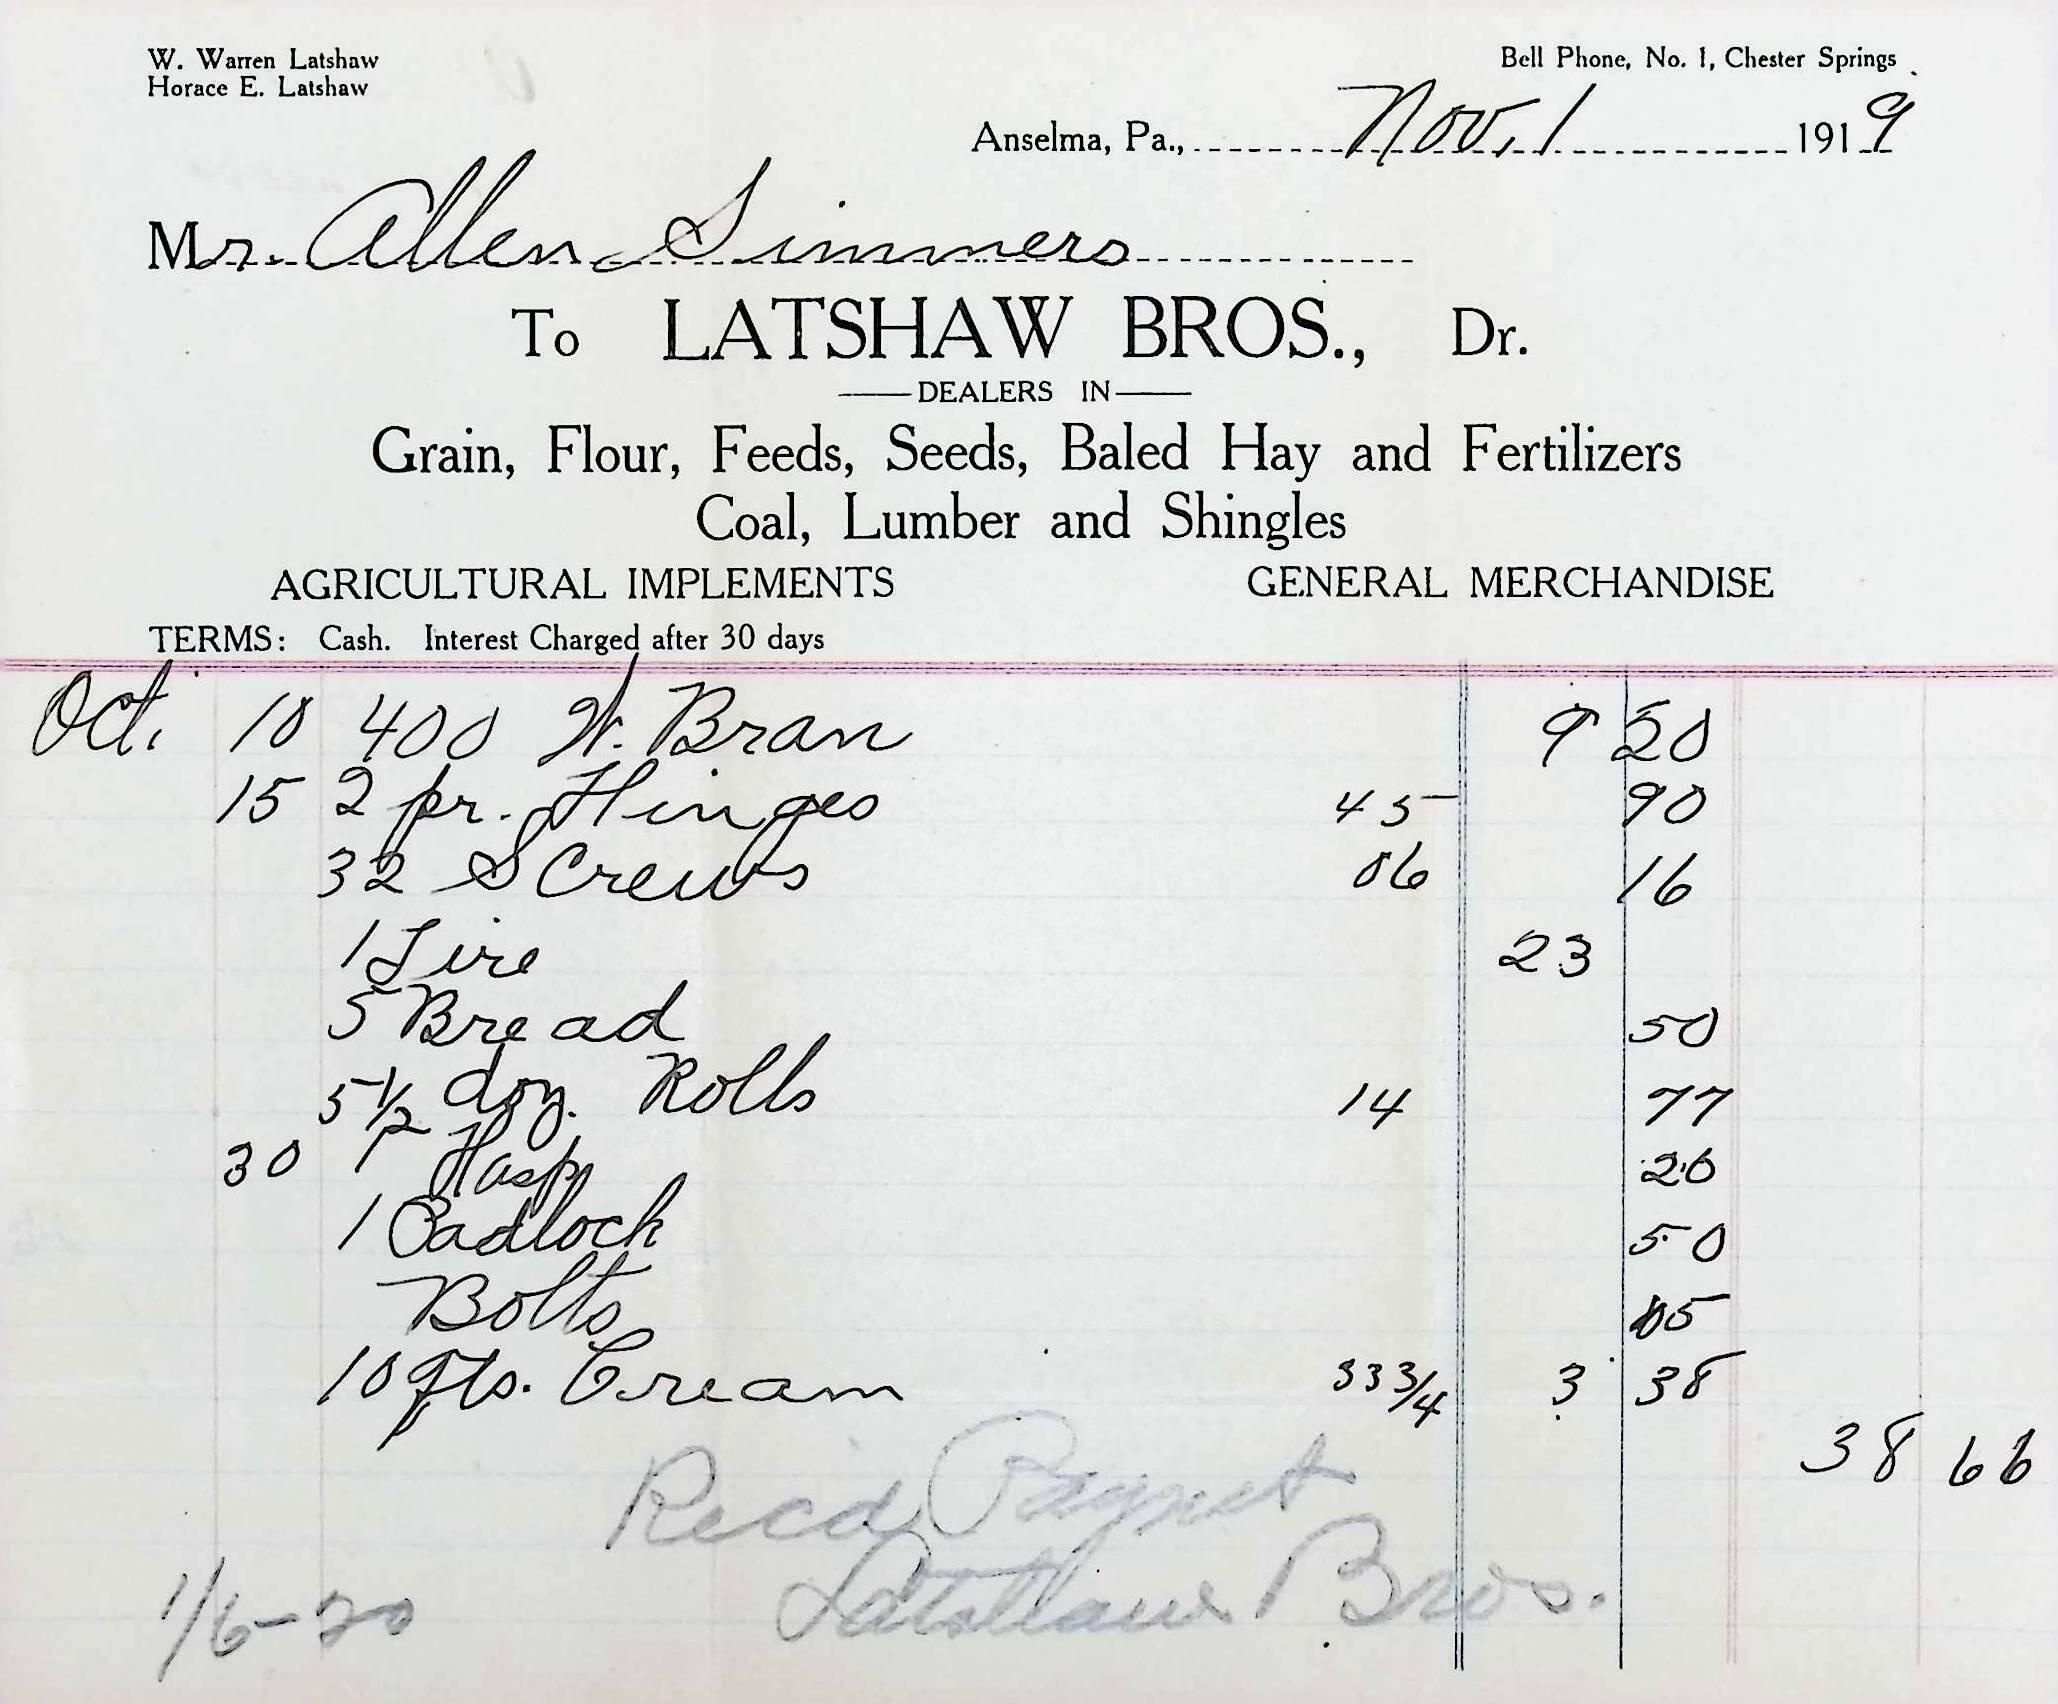 W. Warren Latshaw
Horace E. Latshaw
Bell Phone, No. 1, Chester Springs
Anselma, Pa., Nov. 1 1919
Mr. Allen Simmers
To LATSHAW BROS., Dr.
DEALERS IN
Grain, Flour, Feeds, Seeds, Baled Hay and Fertilizers
Coal, Lumber and Shingles
AGRICULTURAL IMPLEMENTS GENERAL MERCHANDISE
TERMS: Cash. Interest Charged after 30 days
Oct. 10 400 W. Bran 9 20
15 2 pr. Hinges 45 90
32 Screws 06 16
1 Tire 23
5 Bread 50
5 1/2 doz. Rolls 14 77
30 1 Hasp 20
1 Padlock 50
Bolts 05
10 qts. Cream 33 3/4 3 38
38 66
Recd Paymet
Latshaw Bros.
1/6-20